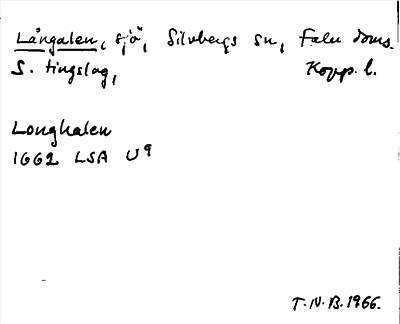 Långalen, sjö, Silvbergs sn, Falu doms.
S. tingslag, Kopp. l.
Longhalen
1662 LSA U9
T.N.B. 1966.